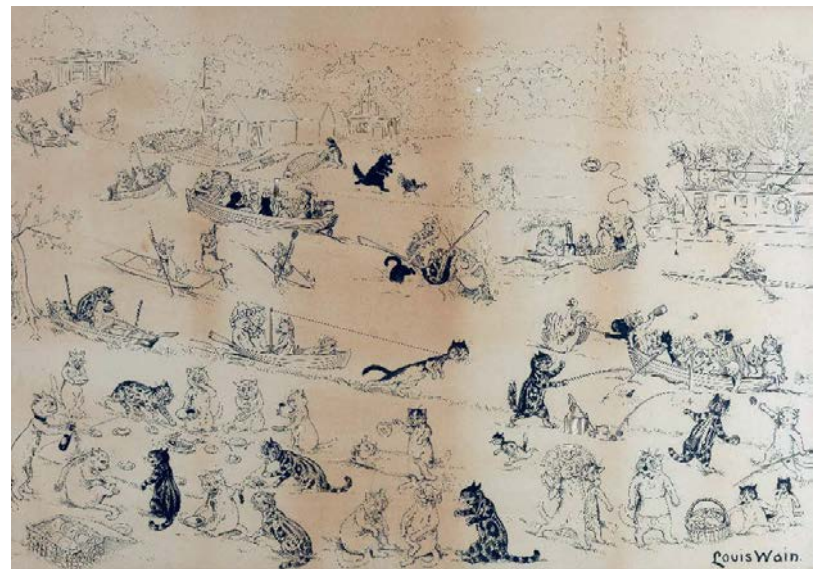 Louis Wain.